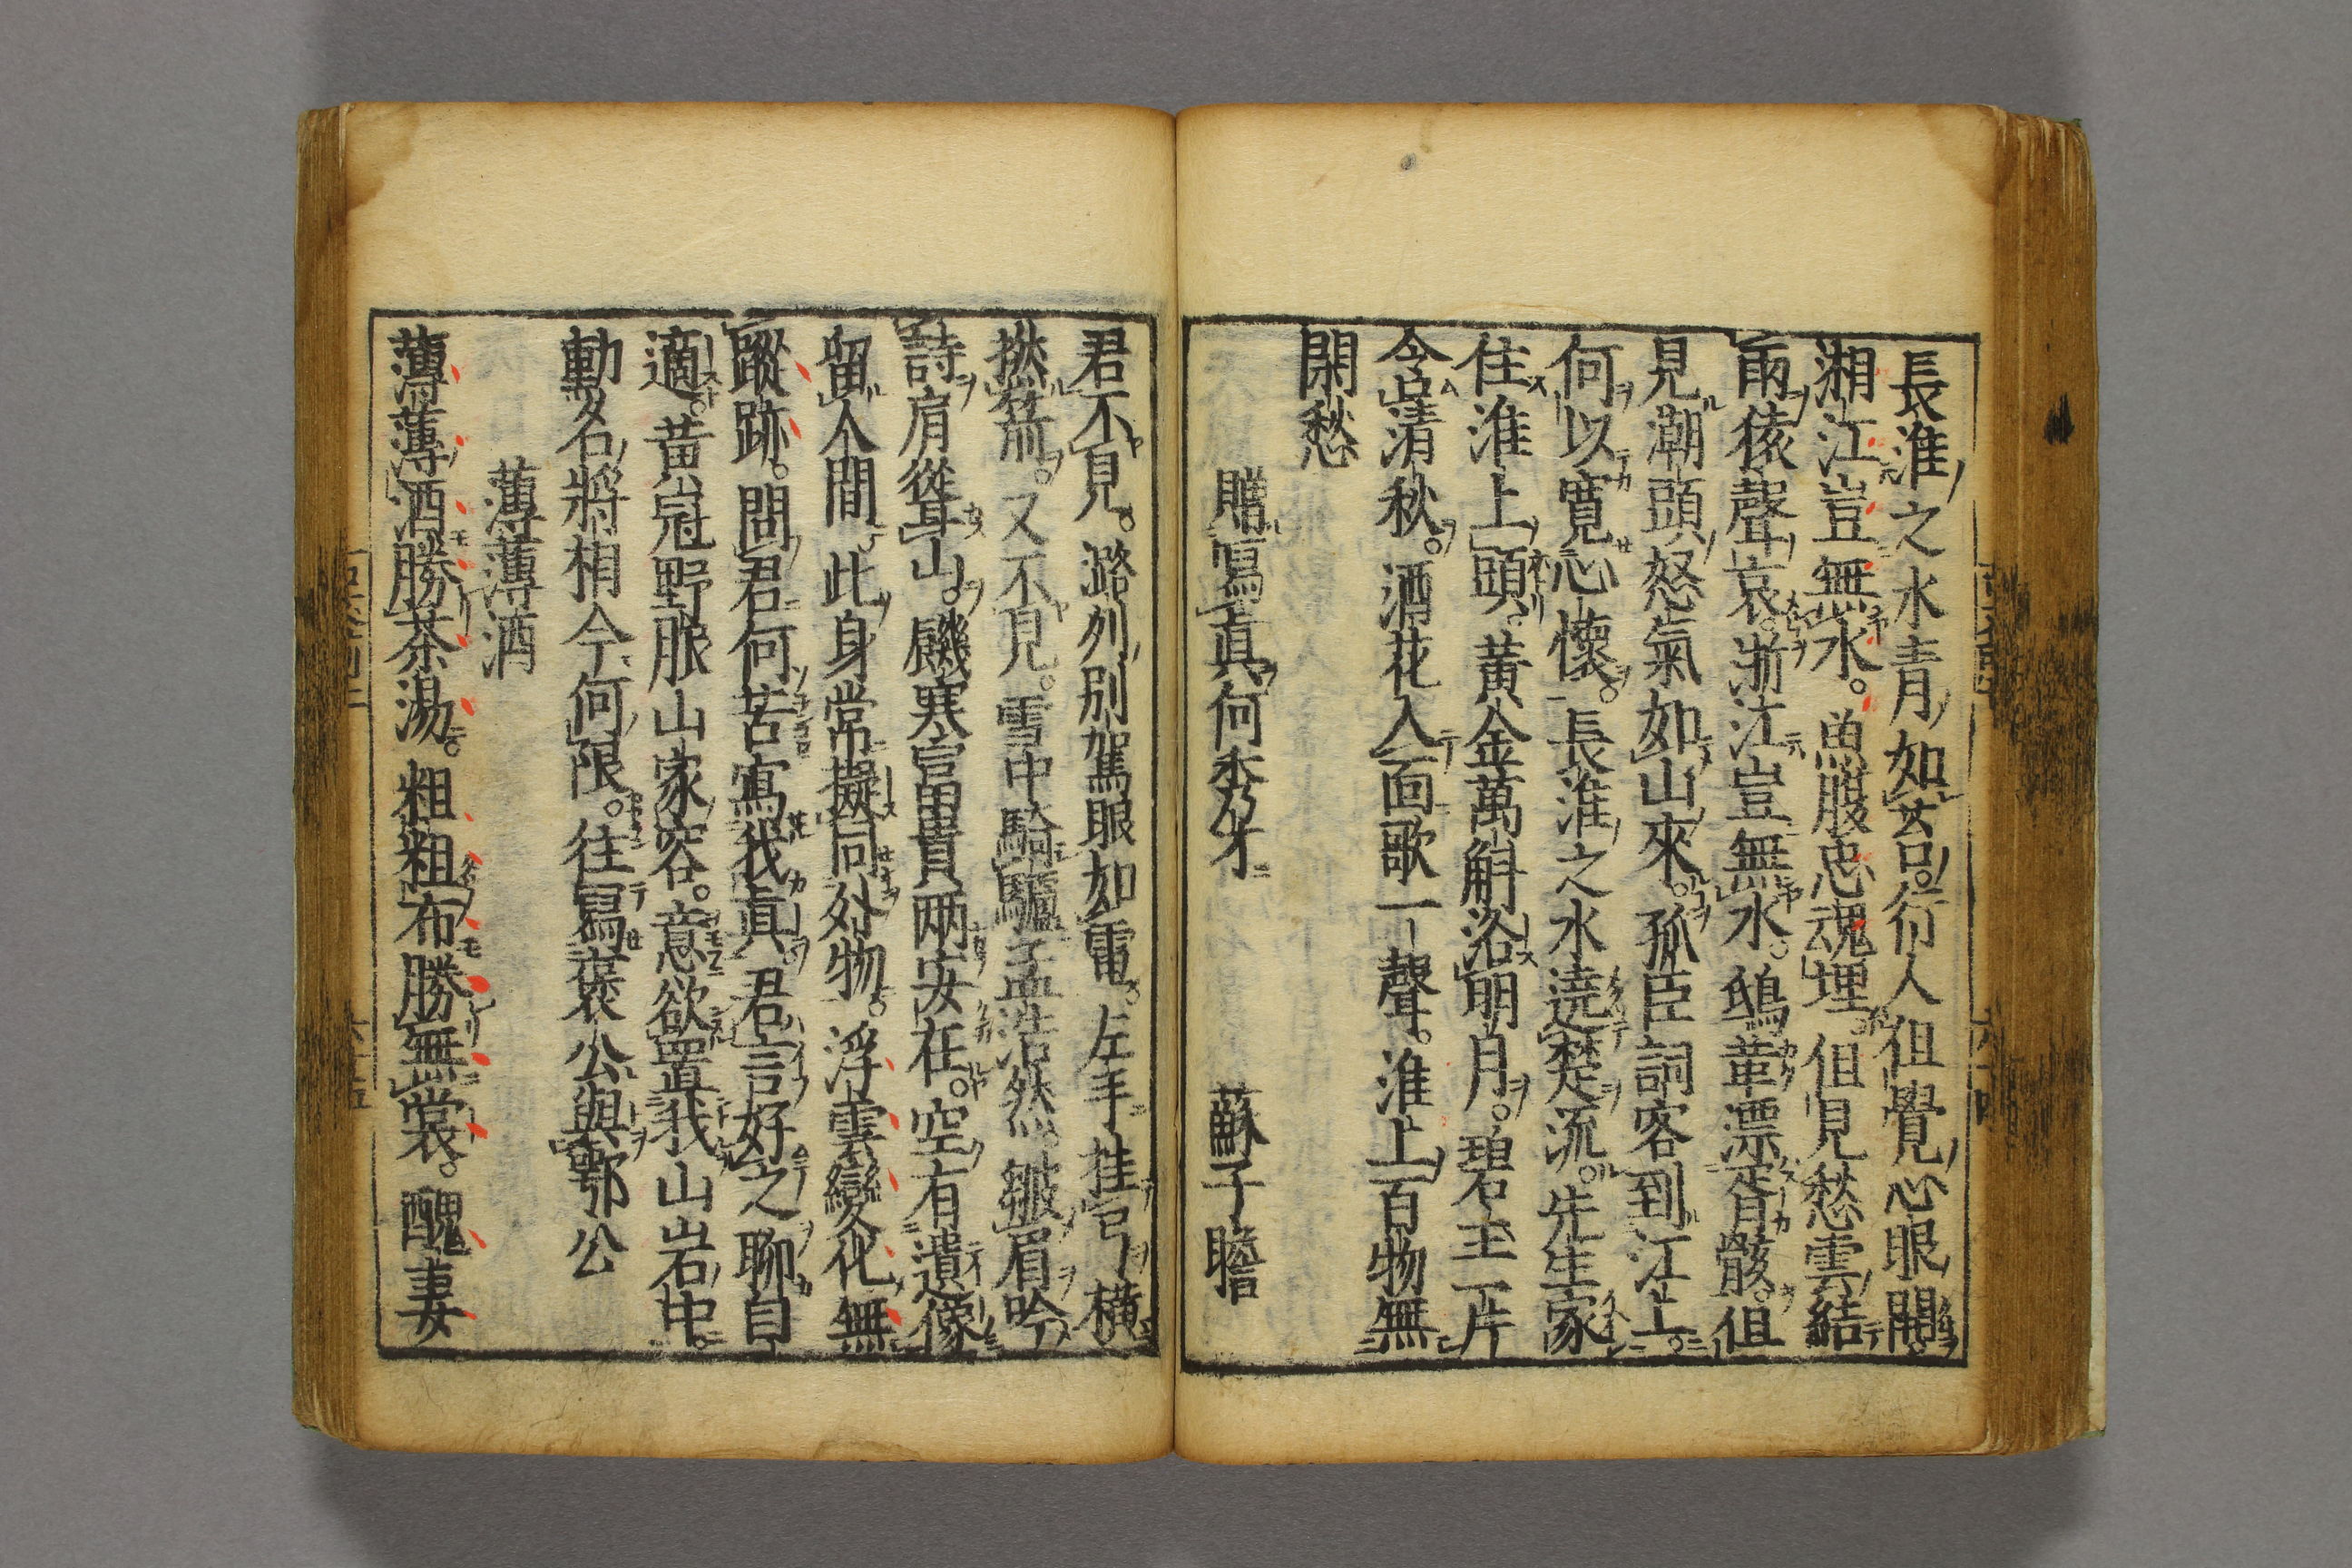 長淮之水青如苔行人但覺心眼開
湘江豈無水魚腹忠魂埋但見愁雲結
雨猿聲哀浙江豈無水鴟革漂胥骸但
見潮頭怒氣如山來孤臣詞客到江上
何以寬心懷長淮之水遶楚流先生家
住淮上頭黃金萬斛浴明月碧玉一片
含清秋酒花入面歌一聲淮上百物無
閑愁
贈寫真何秀才 蘇子瞻
君不見潞列別駕眼如電左手挂弓橫
撚箭又不見雪中騎驢孟浩然皺眉吟
詩肩聳山饑寒富貴兩安在空有遺像
留人間此身常擬同外物浮雲變化無
蹤跡問君何苦寫我真君言好之聊自
適黃冠野服山家容意欲置我山岩中
勳名將相今何限往寫褒公與鄂公
薄薄酒
薄薄酒勝茶湯粗粗布勝無裳醜妻